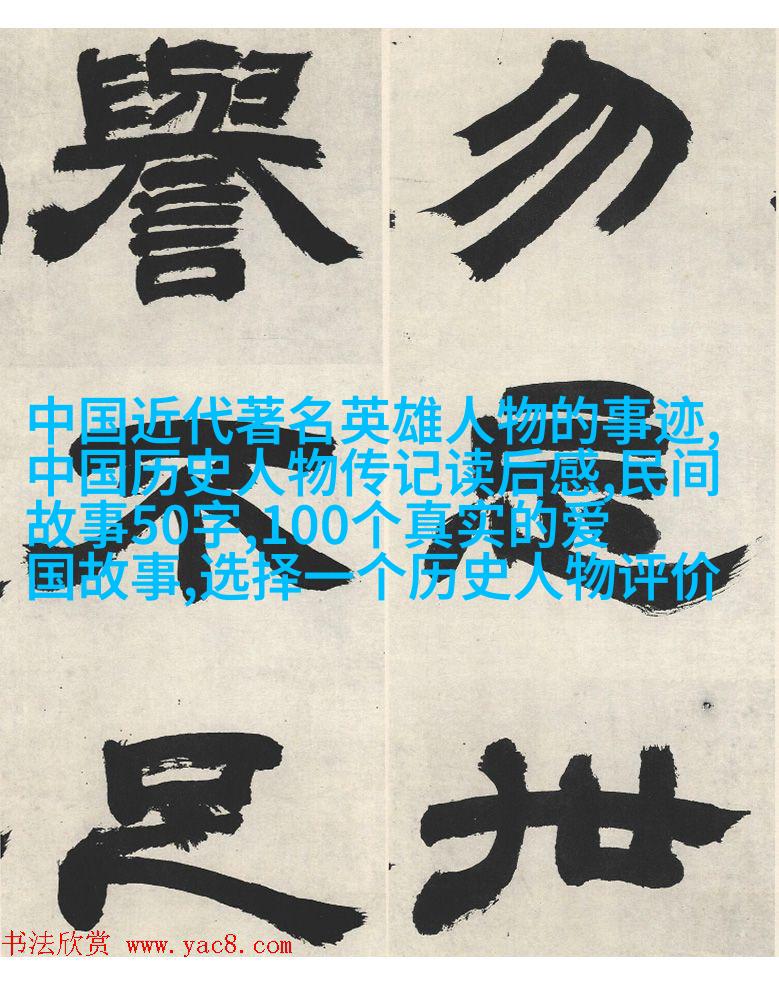 勿世
譽不足
中国近代著名英雄人物的事迹,
中国历史人物传记读后感,民间
故事50字,100个真实的爱
国故事,选择一个历史人物评价
书法欣赏 www.yac8.com